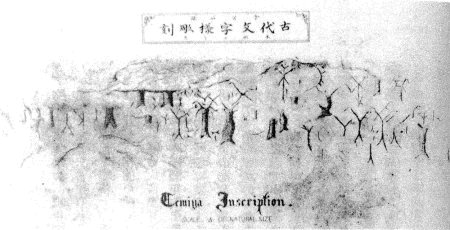 古代文字様彫刻
Temiya Inscription.
SCALE OF NATURAL SIZE